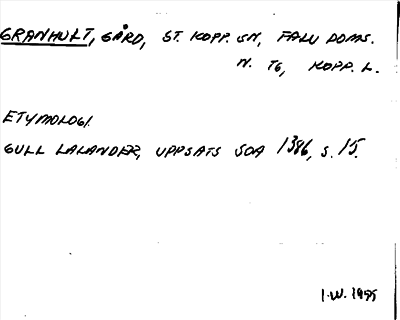 GRANHULT, GÅRD, ST. KOPP. SN, FALU DOMS.
N. TG, KOPP. L.
ETYMOLOGI.
GULL LALANDER, UPPSATS SOA 1386, S. 15.
I.W. 1995